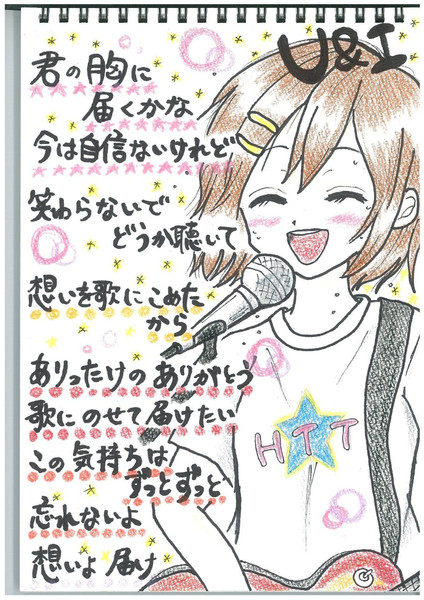 U&I
君の胸に
届くかな
今は自信ないけれど
笑わらないで
どうか聴いて
想いを歌にこめた
から
ありったけのありがとう
歌にのせて届けたい
この気持ちは
ずっとずっと
忘れないよ
想いよ届け
HTT